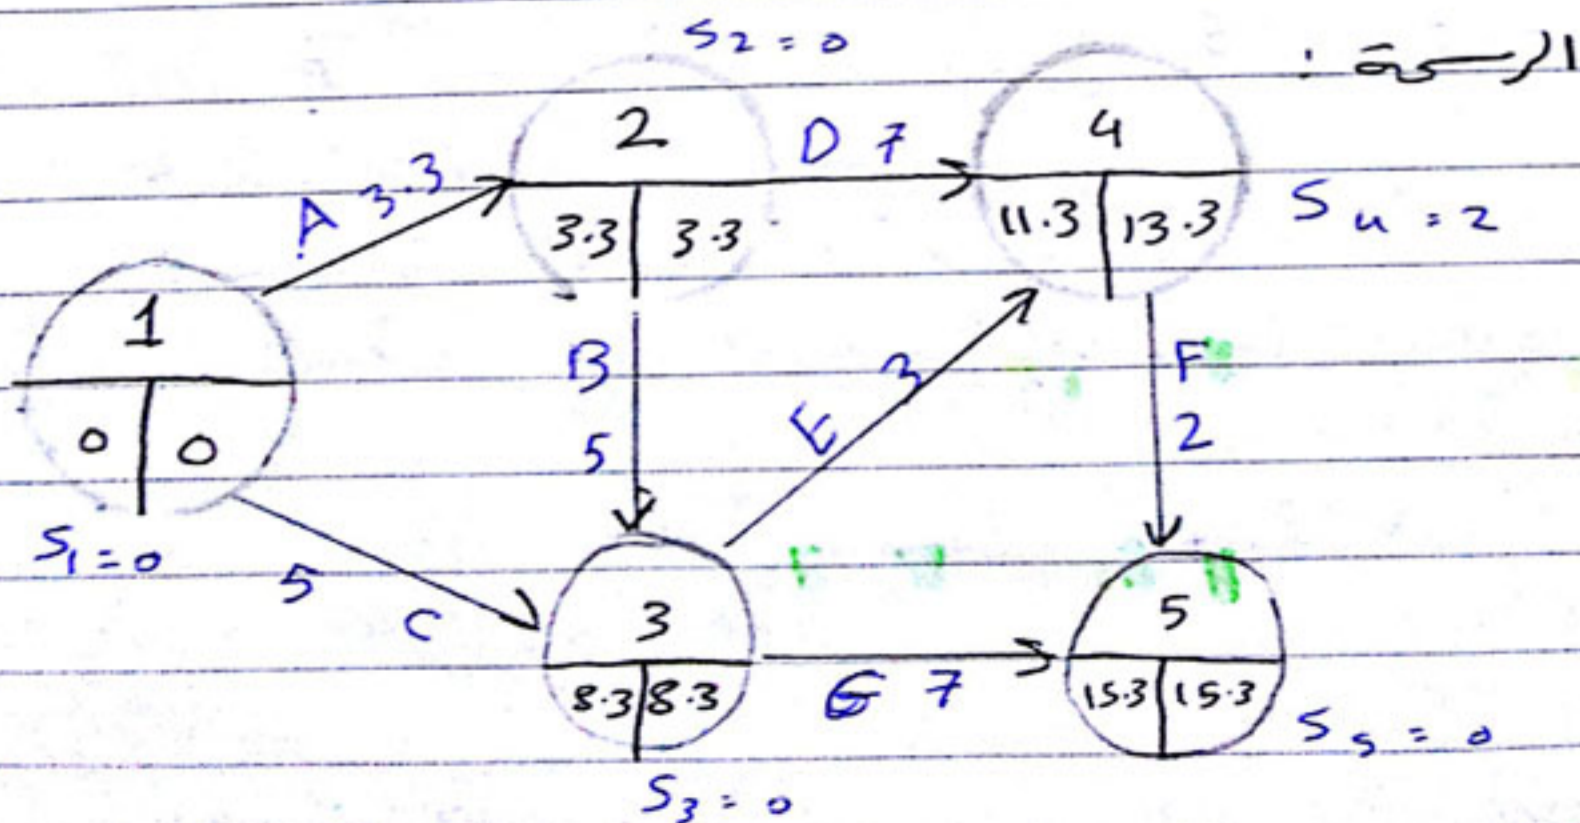 S2 = 0
الرسمة :
2
D 7
4
A 3.3
3.3 3.3
11.3 13.3
S4 = 2
1
B
E 3
F
0 0
5
2
S1 = 0
5
C
3
5
8.3 8.3
G 7
15.3 15.3
S5 = 0
S3 = 0